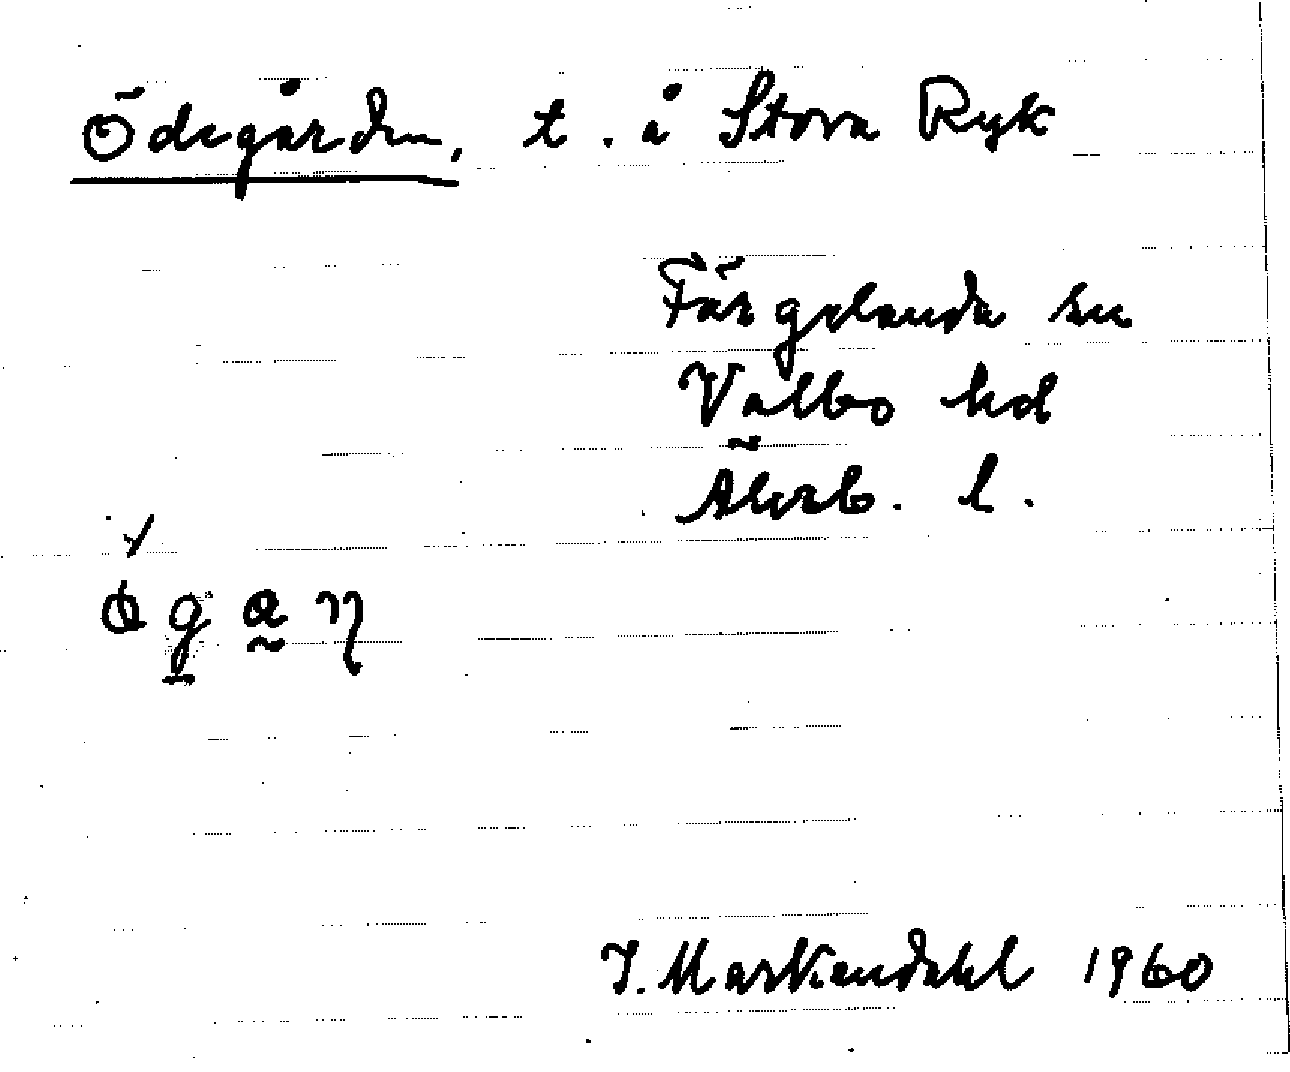 Ödegården, t. å Stora Ryk
Färgelanda sn
Valbo hd
Älvsb. l.
I. Markendahl 1960